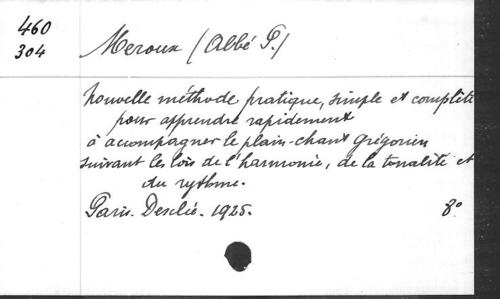 460
304
Meroux (Abbé P.)
Nouvelle méthode pratique, simple et complète
pour apprendre rapidement
à accompagner le plain-chant grégorien
suivant les lois de l'harmonie, de la tonalité et
du rythme.
Paris. Desclée. 1925. 8°